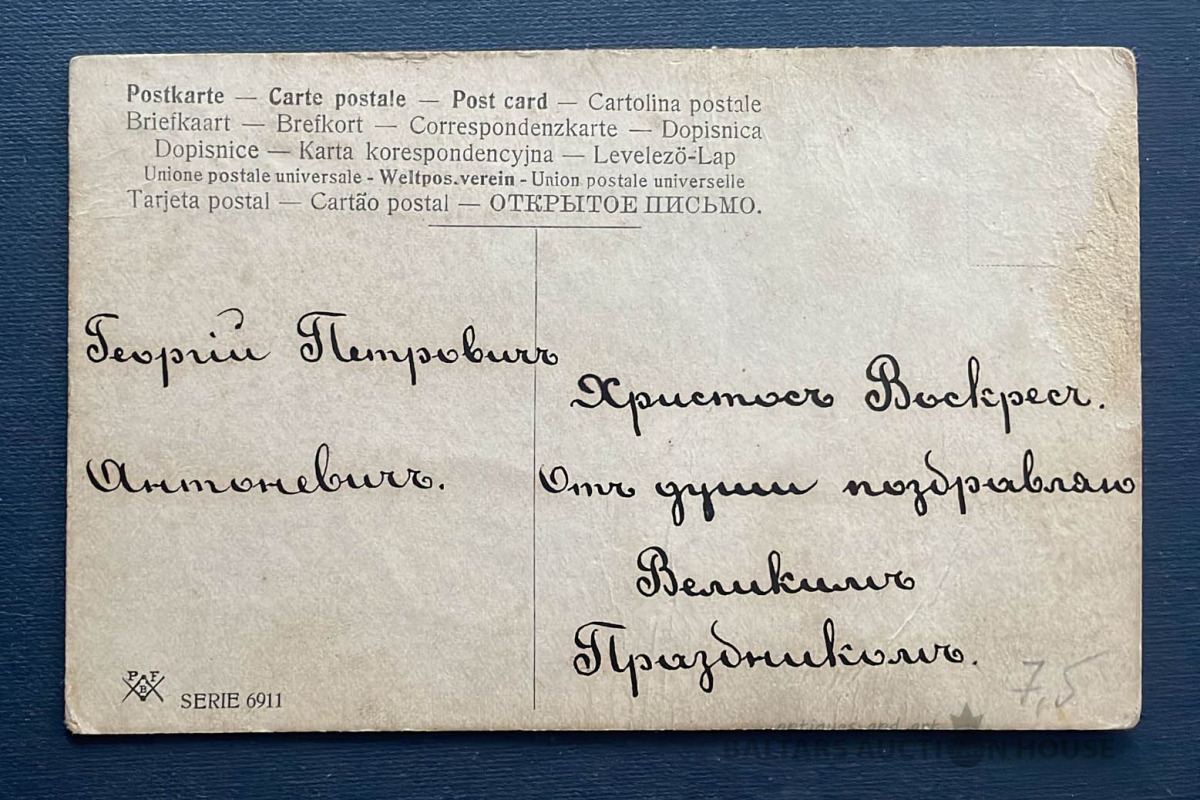 Postkarte — Carte postale — Post card — Cartolina postale
Briefkaart — Brefkort — Correspondenzkarte — Dopisnica
Dopisnice — Karta korespondencyjna — Levelezö-Lap
Unione postale universale - Weltpos.verein - Union postale universelle
Tarjeta postal — Cartão postal — ОТКРЫТОЕ ПИСЬМО.
Георгій Петровичъ
Антоневичъ.
Христосъ Воскресъ.
Отъ души поздравляю
Великимъ
Праздникомъ.
P F B
SERIE 6911
7,5
BALTARS AUCTION HOUSE